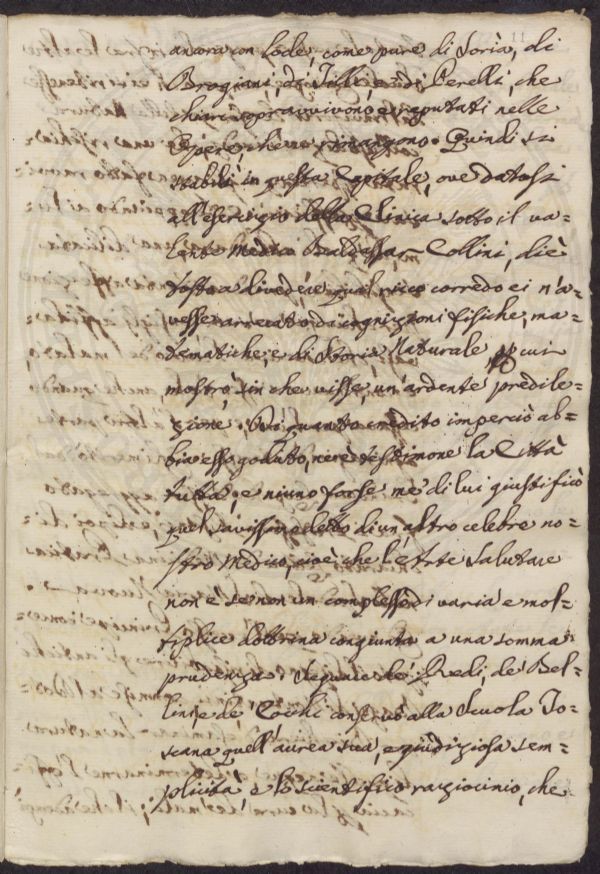 11
ancora con lode, come pure di Soria, di
Brogiani, di Tilli, e di Perelli, che
chiari sopravvivono, e reputati nelle
Opere, che ne rimangono. Quindi si
stabilì in questa Capitale, ove datosi
all'esercizio della Clinica sotto il va=
lente Medico Baldassar Collini, diè
tosto a divedere qual ricco corredo ei n'a=
vesse arrecato di cognizioni fisiche, ma=
tematiche, e di Storia Naturale per cui
mostrò, sin che visse, un'ardente predile=
zione. Di quanto credito imperciò ab=
bia esso goduto, ne è testimone la Città
tutta, e niuno forse me' di lui giustificò
quel savissimo detto di un altro celebre no=
stro Medico, cioè che l'Arte Salutare
non è se non un complesso di varia e mol=
tiplice dottrina congiunta a una somma
prudenza. Seguace de' Redi, de' Bel=
lini e de' Cocchi conservò alla Scuola To=
scana quell'aurea sua, e giudiziosa sem=
plicità e lo scientifico raziocinio, che